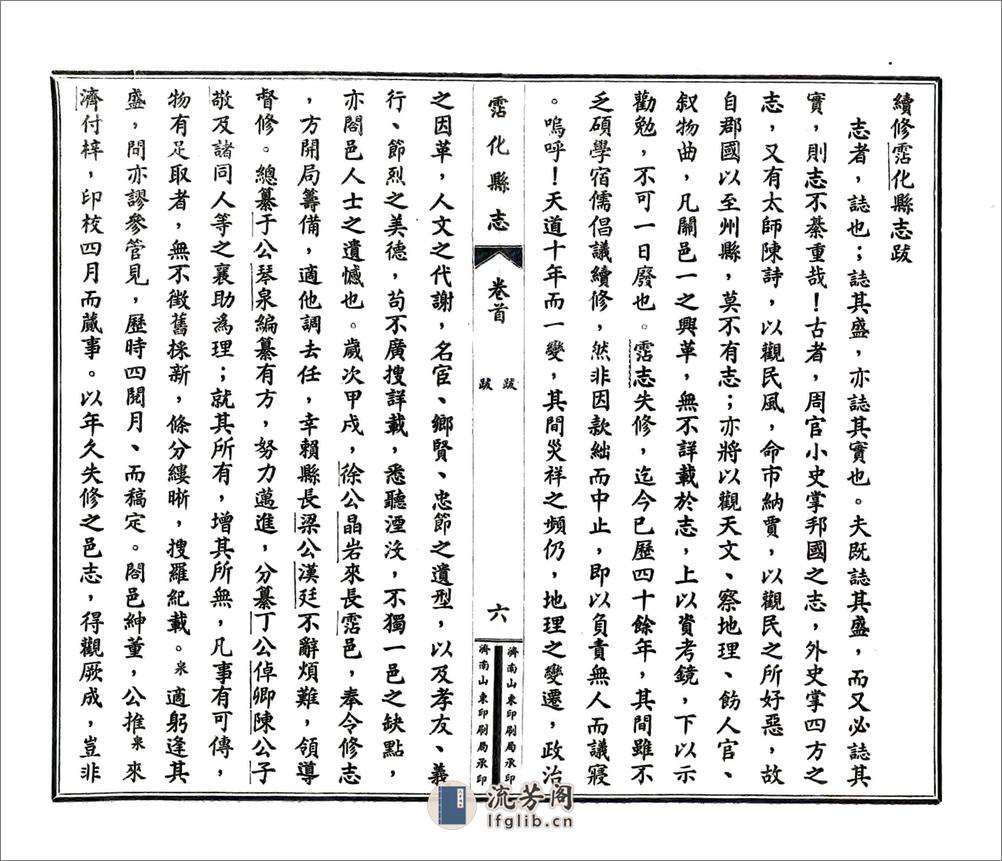 續修霑化縣志跋
志者，誌也；誌其盛，亦誌其實也。夫既誌其盛，而又必誌其
實，則志不綦重哉！古者，周官小史掌邦國之志，外史掌四方之
志，又有太師陳詩，以觀民風，命市納賈，以觀民之所好惡，故
自郡國以至州縣，莫不有志；亦將以觀天文、察地理、飭人官、
叙物曲，凡關邑一之興革，無不詳載於志，上以資考鏡，下以示
勸勉，不可一日廢也。霑志失修，迄今已歷四十餘年，其間雖不
乏碩學宿儒倡議續修，然非因款絀而中止，即以負責無人而議寢
。嗚呼！天道十年而一變，其間災祥之頻仍，地理之變遷，政治
霑化縣志
卷首
跋
跋
六
濟南山東印刷局承印
濟南山東印刷局承印
之因革，人文之代謝，名宦、鄉賢、忠節之遺型，以及孝友、義
行、節烈之美德，苟不廣搜詳載，悉聽湮沒，不獨一邑之缺點，
亦閤邑人士之遺憾也。歲次甲戌，徐公晶岩來長霑邑，奉令修志
，方開局籌備，適他調去任，幸賴縣長梁公漢廷不辭煩難，領導
督修。總纂于公琴泉編纂有方，努力邁進，分纂丁公倬卿陳公子
敬及諸同人等之襄助為理；就其所有，增其所無，凡事有可傳，
物有足取者，無不徵舊採新，條分縷晰，搜羅紀載。泉適躬逢其
盛，間亦謬參管見，歷時四閱月、而稿定。閤邑紳董，公推泉來
濟付梓，印校四月而蕆事。以年久失修之邑志，得觀厥成，豈非
流芳阁
lfglib.cn